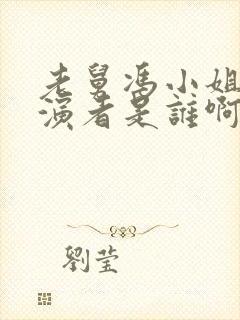 老舅馮小姐
演者是誰啊
劉莹